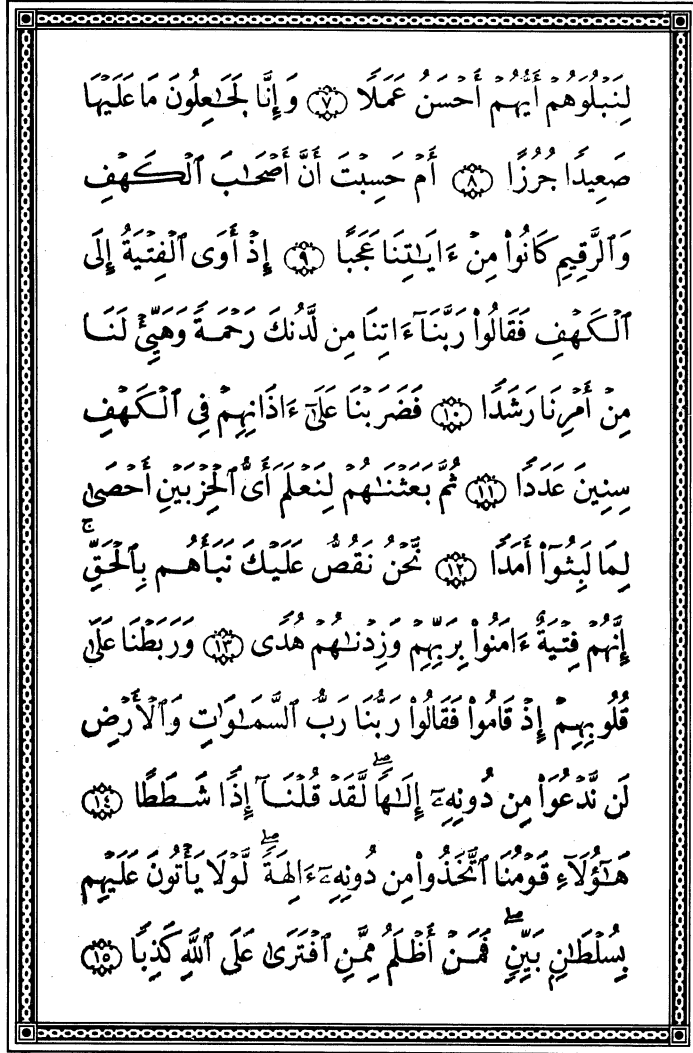 لِنَبْلُوَهُمْ أَيُّهُمْ أَحْسَنُ عَمَلًا ﴿٧﴾ وَإِنَّا لَجَٰعِلُونَ مَا عَلَيْهَا
صَعِيدًا جُرُزًا ﴿٨﴾ أَمْ حَسِبْتَ أَنَّ أَصْحَٰبَ ٱلْكَهْفِ
وَٱلرَّقِيمِ كَانُوا۟ مِنْ ءَايَٰتِنَا عَجَبًا ﴿٩﴾ إِذْ أَوَى ٱلْفِتْيَةُ إِلَى
ٱلْكَهْفِ فَقَالُوا۟ رَبَّنَآ ءَاتِنَا مِن لَّدُنكَ رَحْمَةً وَهَيِّئْ لَنَا
مِنْ أَمْرِنَا رَشَدًا ﴿١٠﴾ فَضَرَبْنَا عَلَىٰٓ ءَاذَانِهِمْ فِى ٱلْكَهْفِ
سِنِينَ عَدَدًا ﴿١١﴾ ثُمَّ بَعَثْنَٰهُمْ لِنَعْلَمَ أَىُّ ٱلْحِزْبَيْنِ أَحْصَىٰ
لِمَا لَبِثُوٓا۟ أَمَدًا ﴿١٢﴾ نَّحْنُ نَقُصُّ عَلَيْكَ نَبَأَهُم بِٱلْحَقِّ ۚ
إِنَّهُمْ فِتْيَةٌ ءَامَنُوا۟ بِرَبِّهِمْ وَزِدْنَٰهُمْ هُدًى ﴿١٣﴾ وَرَبَطْنَا عَلَىٰ
قُلُوبِهِمْ إِذْ قَامُوا۟ فَقَالُوا۟ رَبُّنَا رَبُّ ٱلسَّمَٰوَٰتِ وَٱلْأَرْضِ
لَن نَّدْعُوَا۟ مِن دُونِهِۦٓ إِلَٰهًا ۖ لَّقَدْ قُلْنَآ إِذًا شَطَطًا ﴿١٤﴾
هَٰٓؤُلَآءِ قَوْمُنَا ٱتَّخَذُوا۟ مِن دُونِهِۦٓ ءَالِهَةً ۖ لَّوْلَا يَأْتُونَ عَلَيْهِم
بِسُلْطَٰنٍۭ بَيِّنٍ ۖ فَمَنْ أَظْلَمُ مِمَّنِ ٱفْتَرَىٰ عَلَى ٱللَّهِ كَذِبًا ﴿١٥﴾